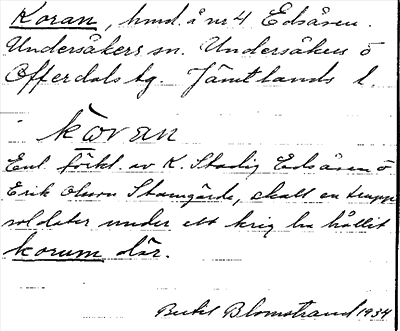 Koran, hmd. å nr 4 Edsåsen.
Undersåkers sn. Undersåkers o
Offerdals tg. Jämtlands l.
kɷran
Enl. förkl. av K. Stadig Edsåsen o
Erik Olsson Stamgärde, skall en trupp
soldater under ett krig ha hållit
korum där.
Bertil Blomstrand 1934